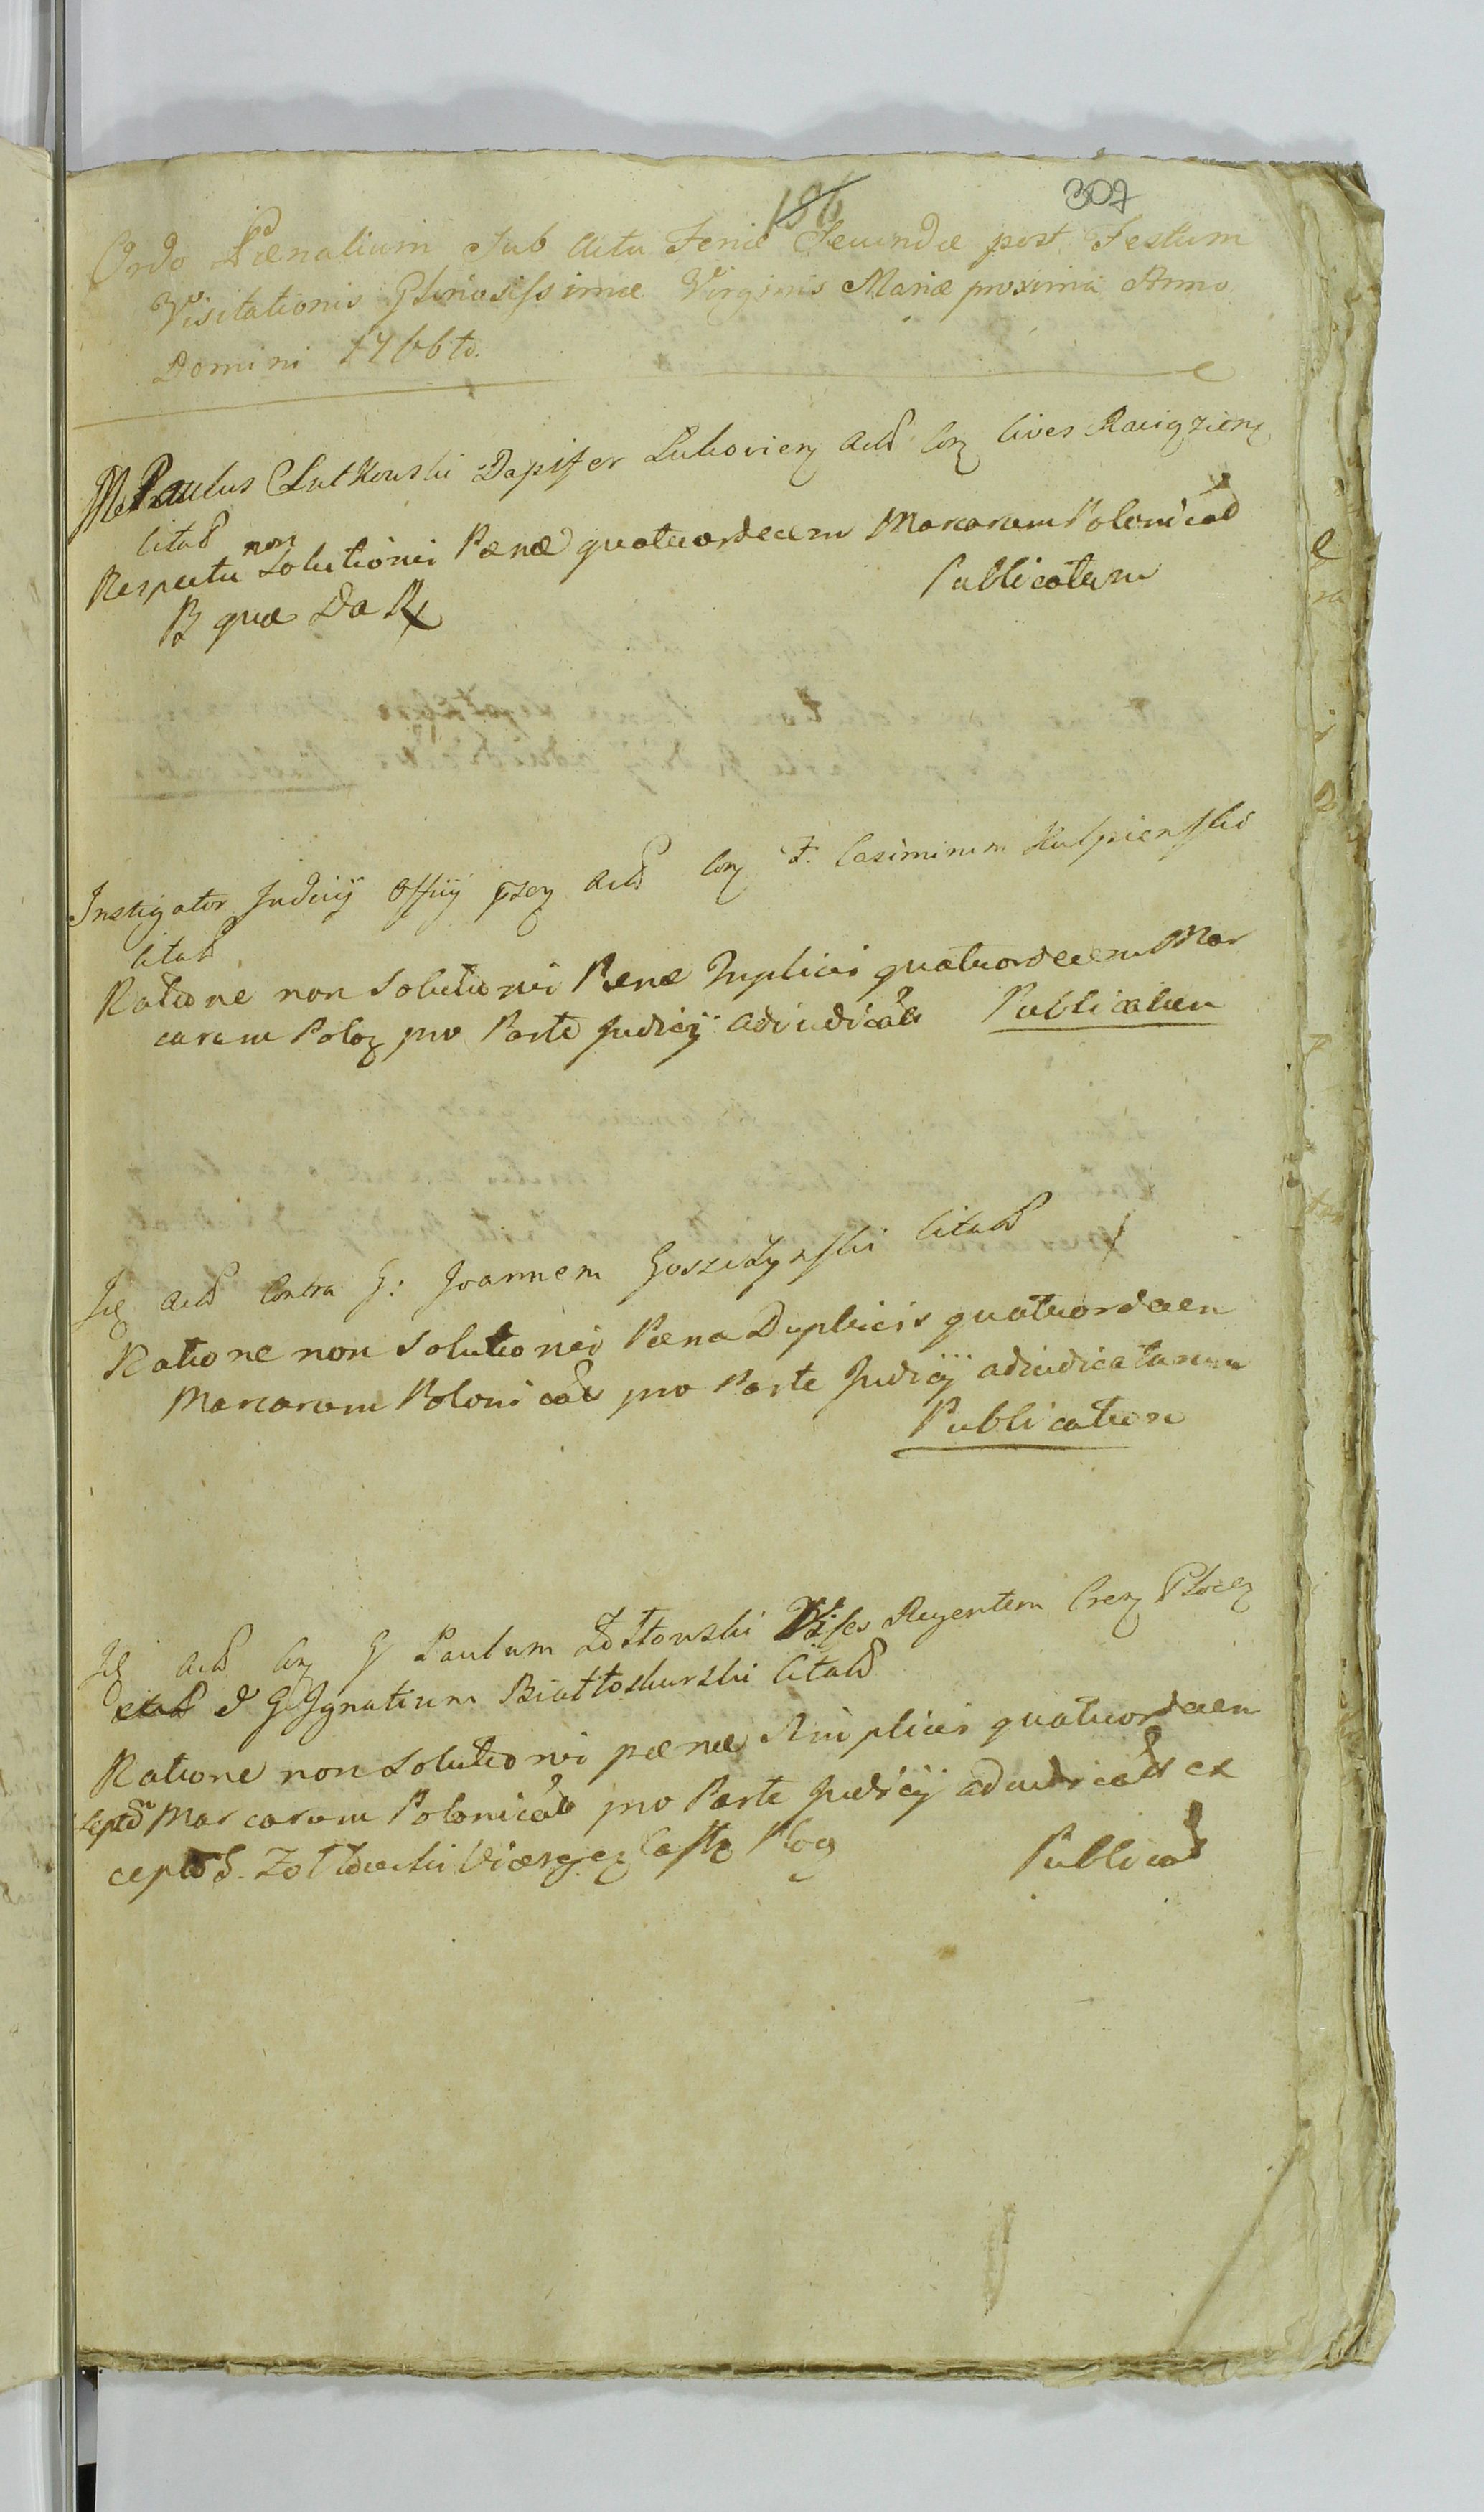 186 307
Ordo Pœnalium Sub Actu Feriæ Secundæ post Festum
Visitationis Gloriosissimæ Virginis Mariæ proxima Anno
Domini 1766to.
M Paulus Lutkowski Dapifer Lukovien Act Con Cives Raciązien
Citat
Respectu non Solutionis Pænæ quatuordecem Marcarum Polonical
Publicatum
R quæ Da
Instigator Judicij Officij Act Con F. Casimirum Kulpienski
Citat
Ratione non Solutionis Penæ Triplicis quatuordecem Mar
carum Polo pro Parte Judicij adiudicat Publicatum
Act Contra G: Joannem Goszczynski Citat
Ratione non Solutionis Pœnæ Duplicis quatuordecem
Marcarum Polonical pro Parte Judicij adiudicatarum
Publicatum
Act Con G Paulum Zołtowski Regentem Cren Plocen
citat & G Ignatium Białłoskurski Citat
Ratione non Solutionis pœnæ Simplicis quatuordecem
Marcarum Polonical pro Parte Judicij adiudicat ex
cepto G. Zołtowski Castr Plo
Publicat